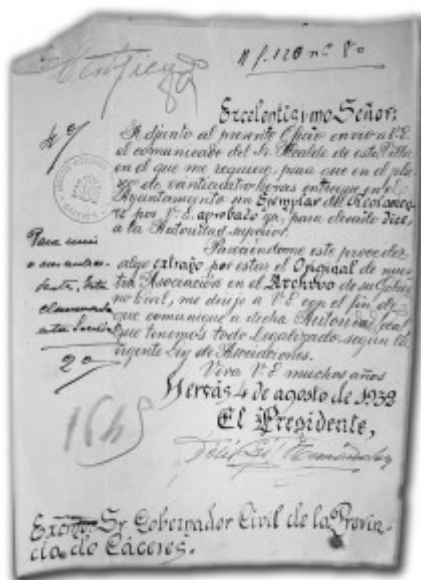 Excelentísimo Señor:
Adjunto al presente Oficio envio a V.E.
el comunicado del Sr. Alcalde de esta Villa
en el que me requiere, para que en el pla-
zo de vanticuatro horas entregue en el
Ayuntamiento un Ejemplar del Reglamen-
to por V.E. aprobado ya, para elevarlo dice,
a la Autoridad superior.
Pareciéndome este proceder
algo extraño por estar el Original de nues-
tra Asociación en el Archivo de su Gobier-
no Civil, me dirijo a V.E con el fin de
que comunique a dicha Autoridad local
que tenemos todo Legalizado según la
vigente Ley de Asociaciones.
Viva V.E muchos años
Hervás 4 de agosto de 1932
El Presidente,
Excmo. Sr. Gobernador Civil de la Provin-
cia de Cáceres.